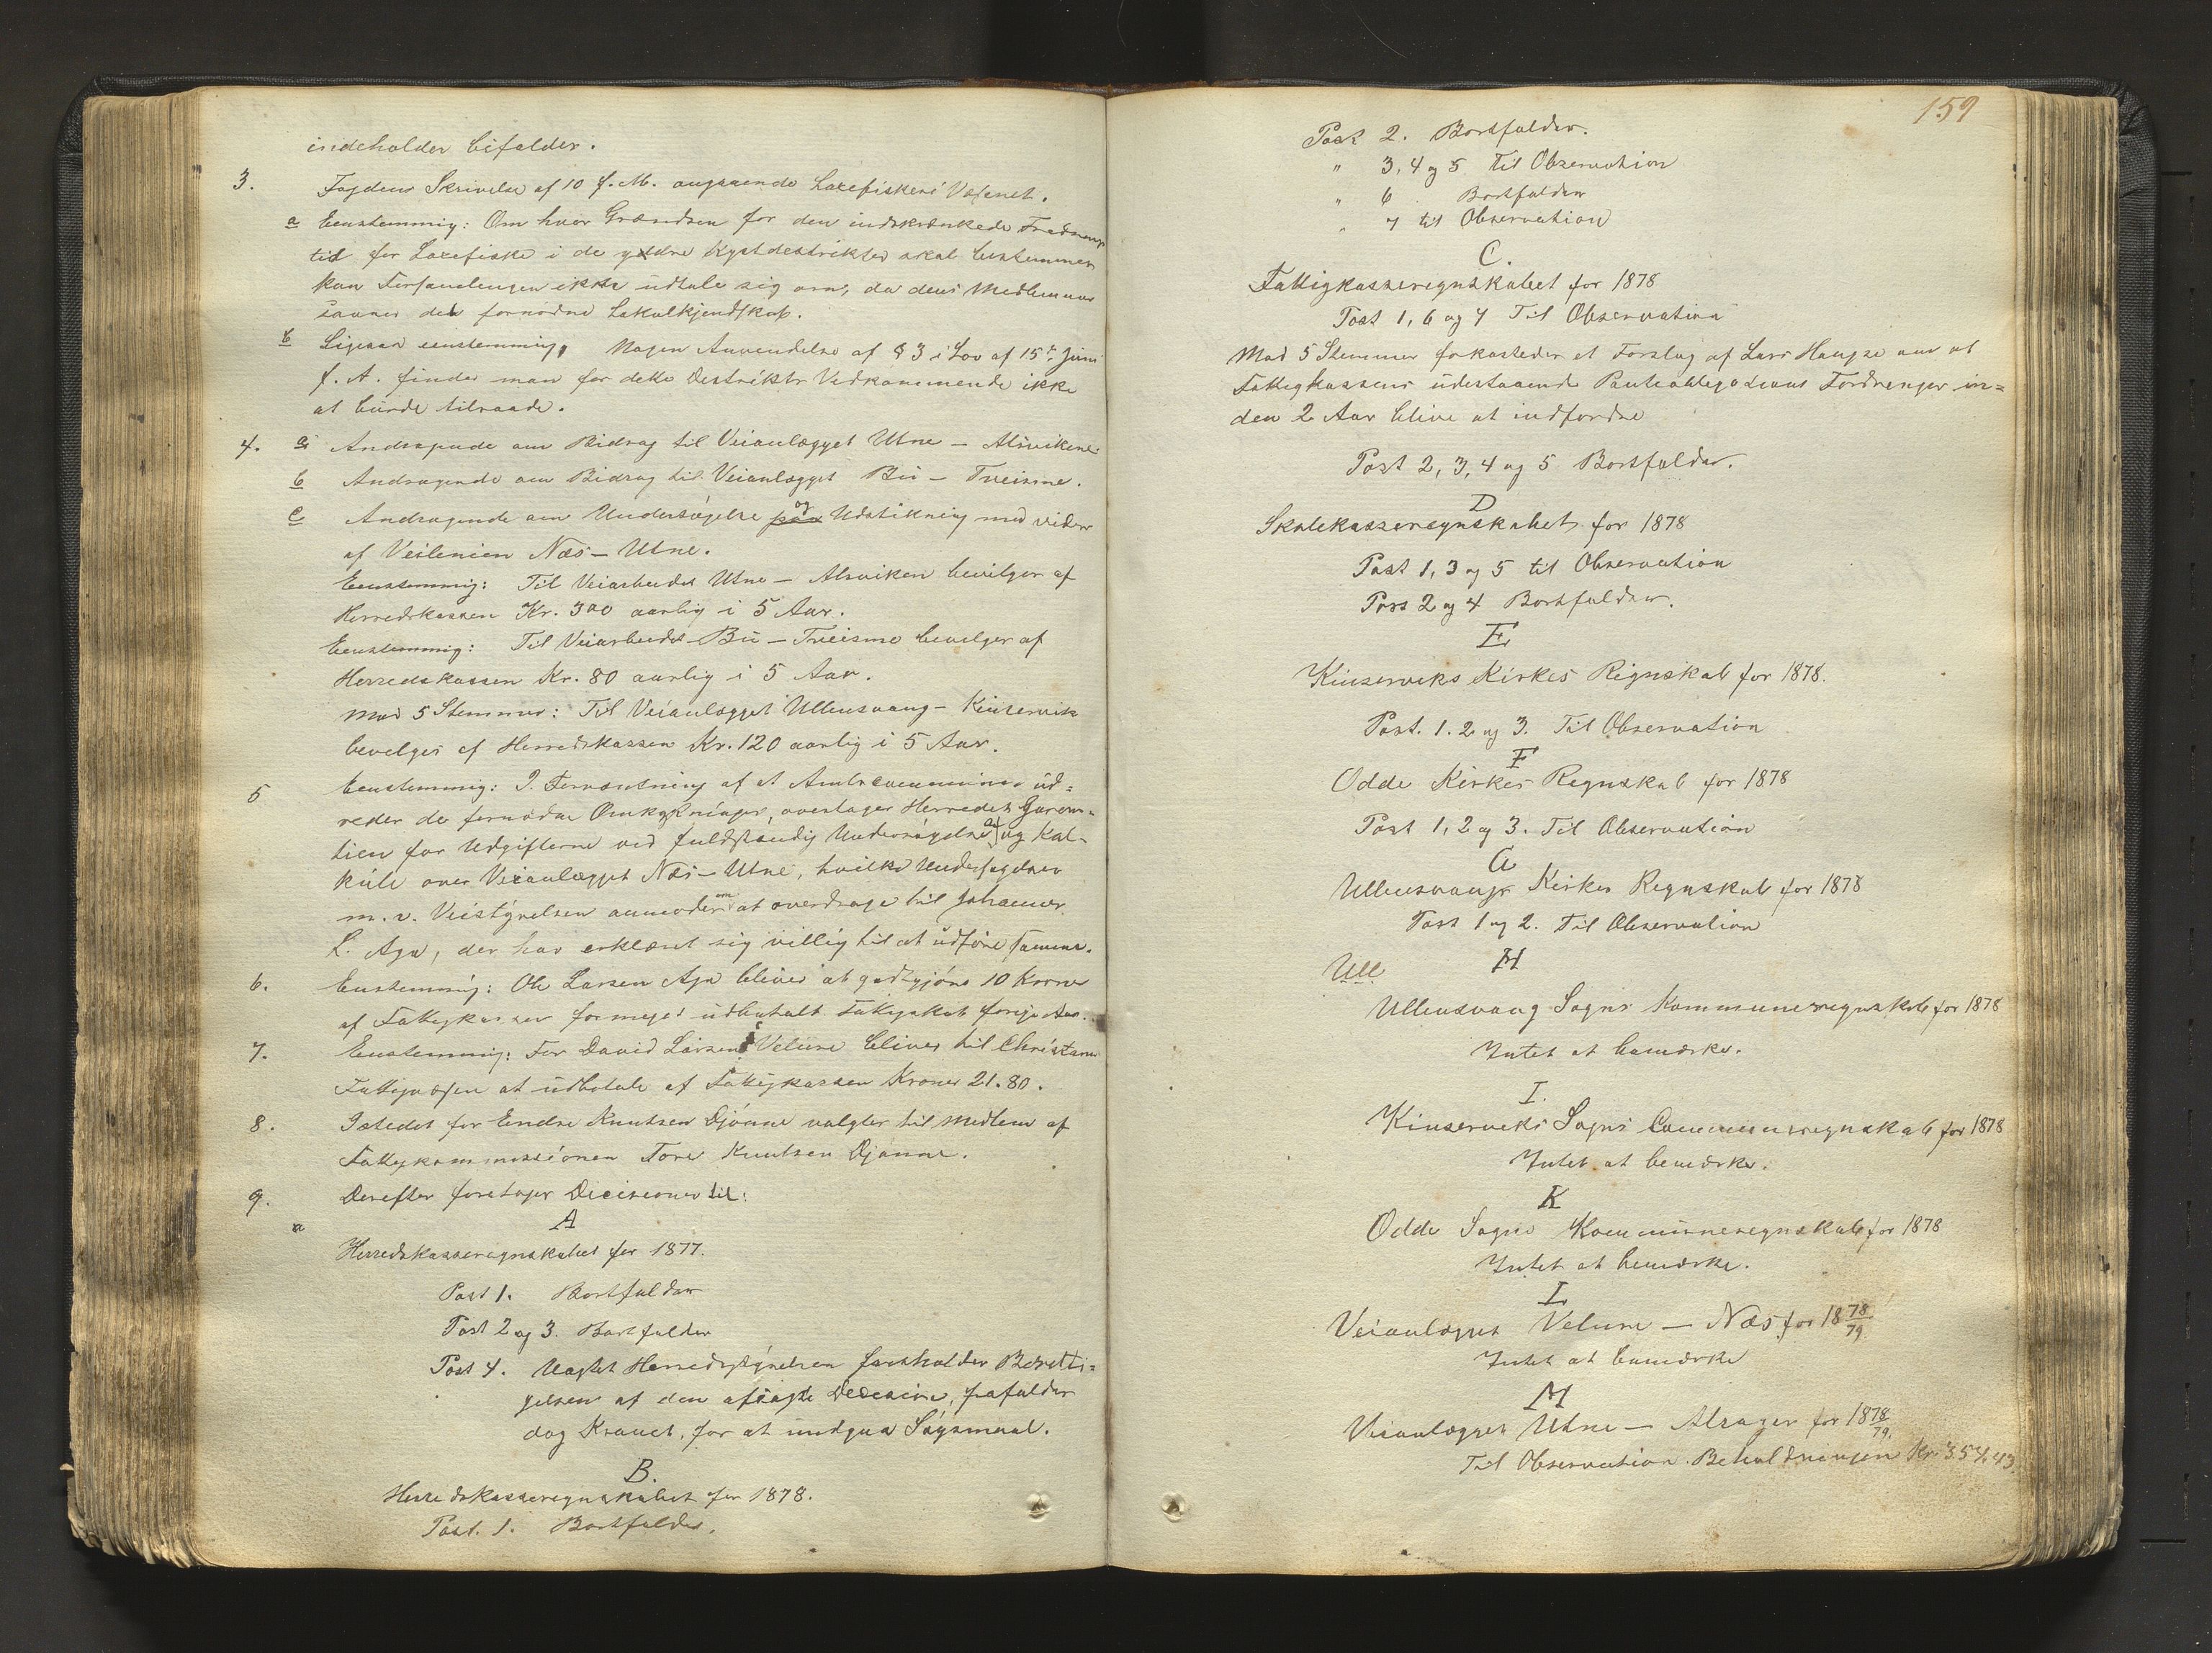 indeholder bifalder.
3. Fogdens Skrivelse af 10 f. M. angaaende Laxefiskeri Væsenet.
a Eenstemmig: Om hvor Grændsen for den indskrænkede Frednings
tid for Laxefiske i de ydre Kystdestrikter skal bestemmes
kan Forsamlingen ikke udtale sig om, da dens Medlemmer
savner den fornødne Lokalkjendskab.
b Ligesaa eenstemmig, Nogen Anvendelse af § 3 i Lov af 15de Juni
f. A. finder man for dette Destrikts Vedkommende ikke
at burde tilraade.
4. a Andragende om Bidrag til Veianlægget Utne – Alsviken
b Andragende om Bidrag til Veianlægget Bu – Tveisme.
c Andragende om Undersøgelse og Udstikning med videre
af Veilinien Næs – Utne.
Eenstemmig: Til Veiarbeidet Utne – Alsviken bevilges af
Herredskassen Kr. 300 aarlig i 5 Aar.
Eenstemmig: Til Veiarbeidet Bu – Tveisme bevilges af
Herredskassen Kr. 80 aarlig i 5 Aar.
Mod 5 Stemmer: Til Veianlægget Ullensvang – Kinservik
bevilges af Herredskassen Kr. 120 aarlig i 5 Aar.
5 Eenstemmig: I Forventning af at Amtscommunen ud=
reder de fornødne Omkostninger, overtager Herredet Garan-
tien for Udgifterne ved fuldstændig Undersøgelse af og Kal-
kule over Veianlægget Næs – Utne, hvilke Undersøgelser
m. v. Veistyrelsen anmodes om at overdrage til Johannes
L. Aga, der har erklæret sig villig til at udføre samme.
6. Eenstemmig: Ole Larsen Aga bliver at godtgjøre 10 Kroner
af Fattigkassen formeget udbetalt Fattigskat forige Aar.
7. Eenstemmig: For David Larsen Velure bliver til Christania
Fattigvæsen at udbetale af Fattigkassen Kroner 21.80.
8. Istedet for Endre Knutsen Djønne valgtes til Medlem af
Fattigkommissionen Tore Knutsen Djønne.
9. Derefter foretoges Decisioner til:
a A
Herredskasseregnskabet for 1877.
Post 1. Bortfalder
Post 2 og 3. Bortfalder
Post 4. Uagtet Herredsstyrelsen fastholder Beretti=
gelsen af den afsagte Decision, frafalder
dog Kravet, for at undgaa Søgsmaal.
B.
Herredskasseregnskabet for 1878.
Post. 1. Bortfalder.
159
Post 2. Bortfalder.
" 3, 4 og 5 til Observation
" 6 Bortfalder
" 7 til Observation
C.
Fattigkasseregnskabet for 1878
Post 1, 6 og 7 Til Observation
Mod 5 Stemmer forkastedes et Forslag af Lars Haugse om at
Fattigkassens udestaaende Panteobligations Fordringer in=
den 2 Aar blive at indfordre
Post 2, 3, 4 og 5 Bortfalder.
D
Skolekasseregnskabet for 1878
Post 1, 3 og 5 til Observation
Post 2 og 4 Bortfalder.
E
Kinserviks Kirkes Regnskab for 1878.
Post. 1. 2 og 3. Til Observation
F
Odde Kirkes Regnskab for 1878
Post 1, 2 og 3. Til Observation
G
Ullensvangs Kirkes Regnskab for 1878
Post 1 og 2. Til Observation
Ull H
Ullensvang Sogns Kommuneregnskab for 1878
Intet at bemærke.
I.
Kinserviks Sogns Communeregnskab for 1878
Intet at bemærke.
K
Odde Sogns Kommuneregnskab for 1878
Intet at bemærke.
L
Veianlægget Velure – Næs for 1878/79
Intet at bemærke
M
Veianlægget Utne – Alsager for 1878/79.
Til Observation Beholdningen Kr. 354,43.